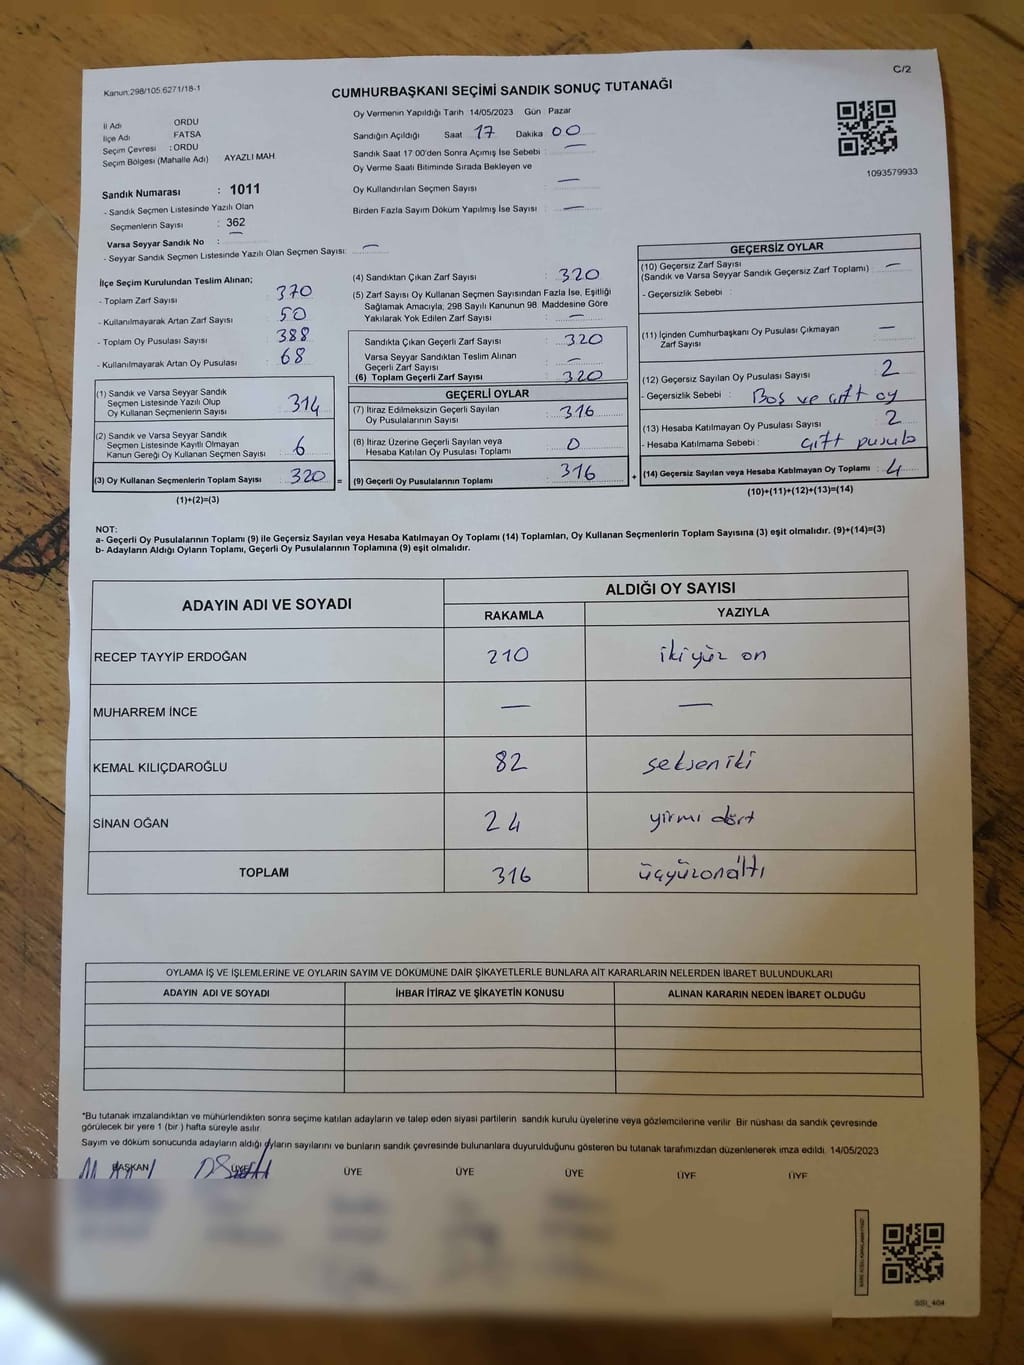 C/2
Kanun:298/105.6271/18-1
CUMHURBAŞKANI SEÇİMİ SANDIK SONUÇ TUTANAĞI
İl Adı ORDU
İlçe Adı FATSA
Seçim Çevresi : ORDU
Seçim Bölgesi (Mahalle Adı) AYAZLI MAH
Sandık Numarası : 1011
- Sandık Seçmen Listesinde Yazılı Olan
Seçmenlerin Sayısı : 362
Varsa Seyyar Sandık No : —
- Seyyar Sandık Seçmen Listesinde Yazılı Olan Seçmen Sayısı: —
Oy Vermenin Yapıldığı Tarih 14/05/2023 Gün : Pazar
Sandığın Açıldığı Saat 17 Dakika 00
Sandık Saat 17:00'den Sonra Açımış İse Sebebi : —
Oy Verme Saati Bitiminde Sırada Bekleyen ve
Oy Kullandırılan Seçmen Sayısı : —
Birden Fazla Sayım Döküm Yapılmış İse Sayısı : —
1093579933
İlçe Seçim Kurulundan Teslim Alınan;
- Toplam Zarf Sayısı 370
- Kullanılmayarak Artan Zarf Sayısı 50
- Toplam Oy Pusulası Sayısı 388
- Kullanılmayarak Artan Oy Pusulası 68
(1) Sandık ve Varsa Seyyar Sandık
Seçmen Listesinde Yazılı Olup
Oy Kullanan Seçmenlerin Sayısı 314
(2) Sandık ve Varsa Seyyar Sandık
Seçmen Listesinde Kayıtlı Olmayan
Kanun Gereği Oy Kullanan Seçmen Sayısı : 6
(3) Oy Kullanan Seçmenlerin Toplam Sayısı : 320 =
(1)+(2)=(3)
(4) Sandıktan Çıkan Zarf Sayısı : 320
(5) Zarf Sayısı Oy Kullanan Seçmen Sayısından Fazla İse, Eşitliği
Sağlamak Amacıyla; 298 Sayılı Kanunun 98. Maddesine Göre
Yakılarak Yok Edilen Zarf Sayısı : —
Sandıkta Çıkan Geçerli Zarf Sayısı : 320
Varsa Seyyar Sandıktan Teslim Alınan
Geçerli Zarf Sayısı : —
(6) Toplam Geçerli Zarf Sayısı : 320
GEÇERLİ OYLAR
(7) İtiraz Edilmeksizin Geçerli Sayılan
Oy Pusulalarının Toplamı : 316
(8) İtiraz Üzerine Geçerli Sayılan veya
Hesaba Katılan Oy Pusulası Toplamı : 0
(9) Geçerli Oy Pusulalarının Toplamı : 316 +
GEÇERSİZ OYLAR
(10) Geçersiz Zarf Sayısı
(Sandık ve Varsa Seyyar Sandık Geçersiz Zarf Toplamı) : —
- Geçersizlik Sebebi :
(11) İçinden Cumhurbaşkanı Oy Pusulası Çıkmayan
Zarf Sayısı : —
(12) Geçersiz Sayılan Oy Pusulası Sayısı : 2
- Geçersizlik Sebebi : Boş ve çift oy
(13) Hesaba Katılmayan Oy Pusulası Sayısı : 2
- Hesaba Katılmama Sebebi : çift
(14) Geçersiz Sayılan veya Hesaba Katılmayan Oy Toplamı : 4
(10)+(11)+(12)+(13)=(14)
NOT:
a- Geçerli Oy Pusulalarının Toplamı (9) ile Geçersiz Sayılan veya Hesaba Katılmayan Oy Toplamı (14) Toplamları, Oy Kullanan Seçmenlerin Toplam Sayısına (3) eşit olmalıdır. (9)+(14)=(3)
b- Adayların Aldığı Oyların Toplamı, Geçerli Oy Pusulalarının Toplamına (9) eşit olmalıdır.
ADAYIN ADI VE SOYADI ALDIĞI OY SAYISI
RAKAMLA YAZIYLA
RECEP TAYYİP ERDOĞAN 210 ikiyüz on
MUHARREM İNCE — —
KEMAL KILIÇDAROĞLU 82 seksen iki
SİNAN OĞAN 24 yirmi dört
TOPLAM 316 üçyüzonaltı
OYLAMA İŞ VE İŞLEMLERİNE VE OYLARIN SAYIM VE DÖKÜMÜNE DAİR ŞİKAYETLERLE BUNLARA AİT KARARLARIN NELERDEN İBARET BULUNDUKLARI
ADAYIN ADI VE SOYADI İHBAR İTİRAZ VE ŞİKAYETİN KONUSU ALINAN KARARIN NEDEN İBARET OLDUĞU
*Bu tutanak imzalandıktan ve mühürlendikten sonra seçime katılan adayların ve talep eden siyasi partilerin sandık kurulu üyelerine veya gözlemcilerine verilir. Bir nüshası da sandık çevresinde
görülecek bir yere 1 (bir ) hafta süreyle asılır.
Sayım ve döküm sonucunda adayların aldığı oyların sayılarını ve bunların sandık çevresinde bulunanlara duyurulduğunu gösteren bu tutanak tarafımızdan düzenlenerek imza edildi. 14/05/2023
BAŞKAN ÜYE ÜYE ÜYE ÜYE ÜYE ÜYE